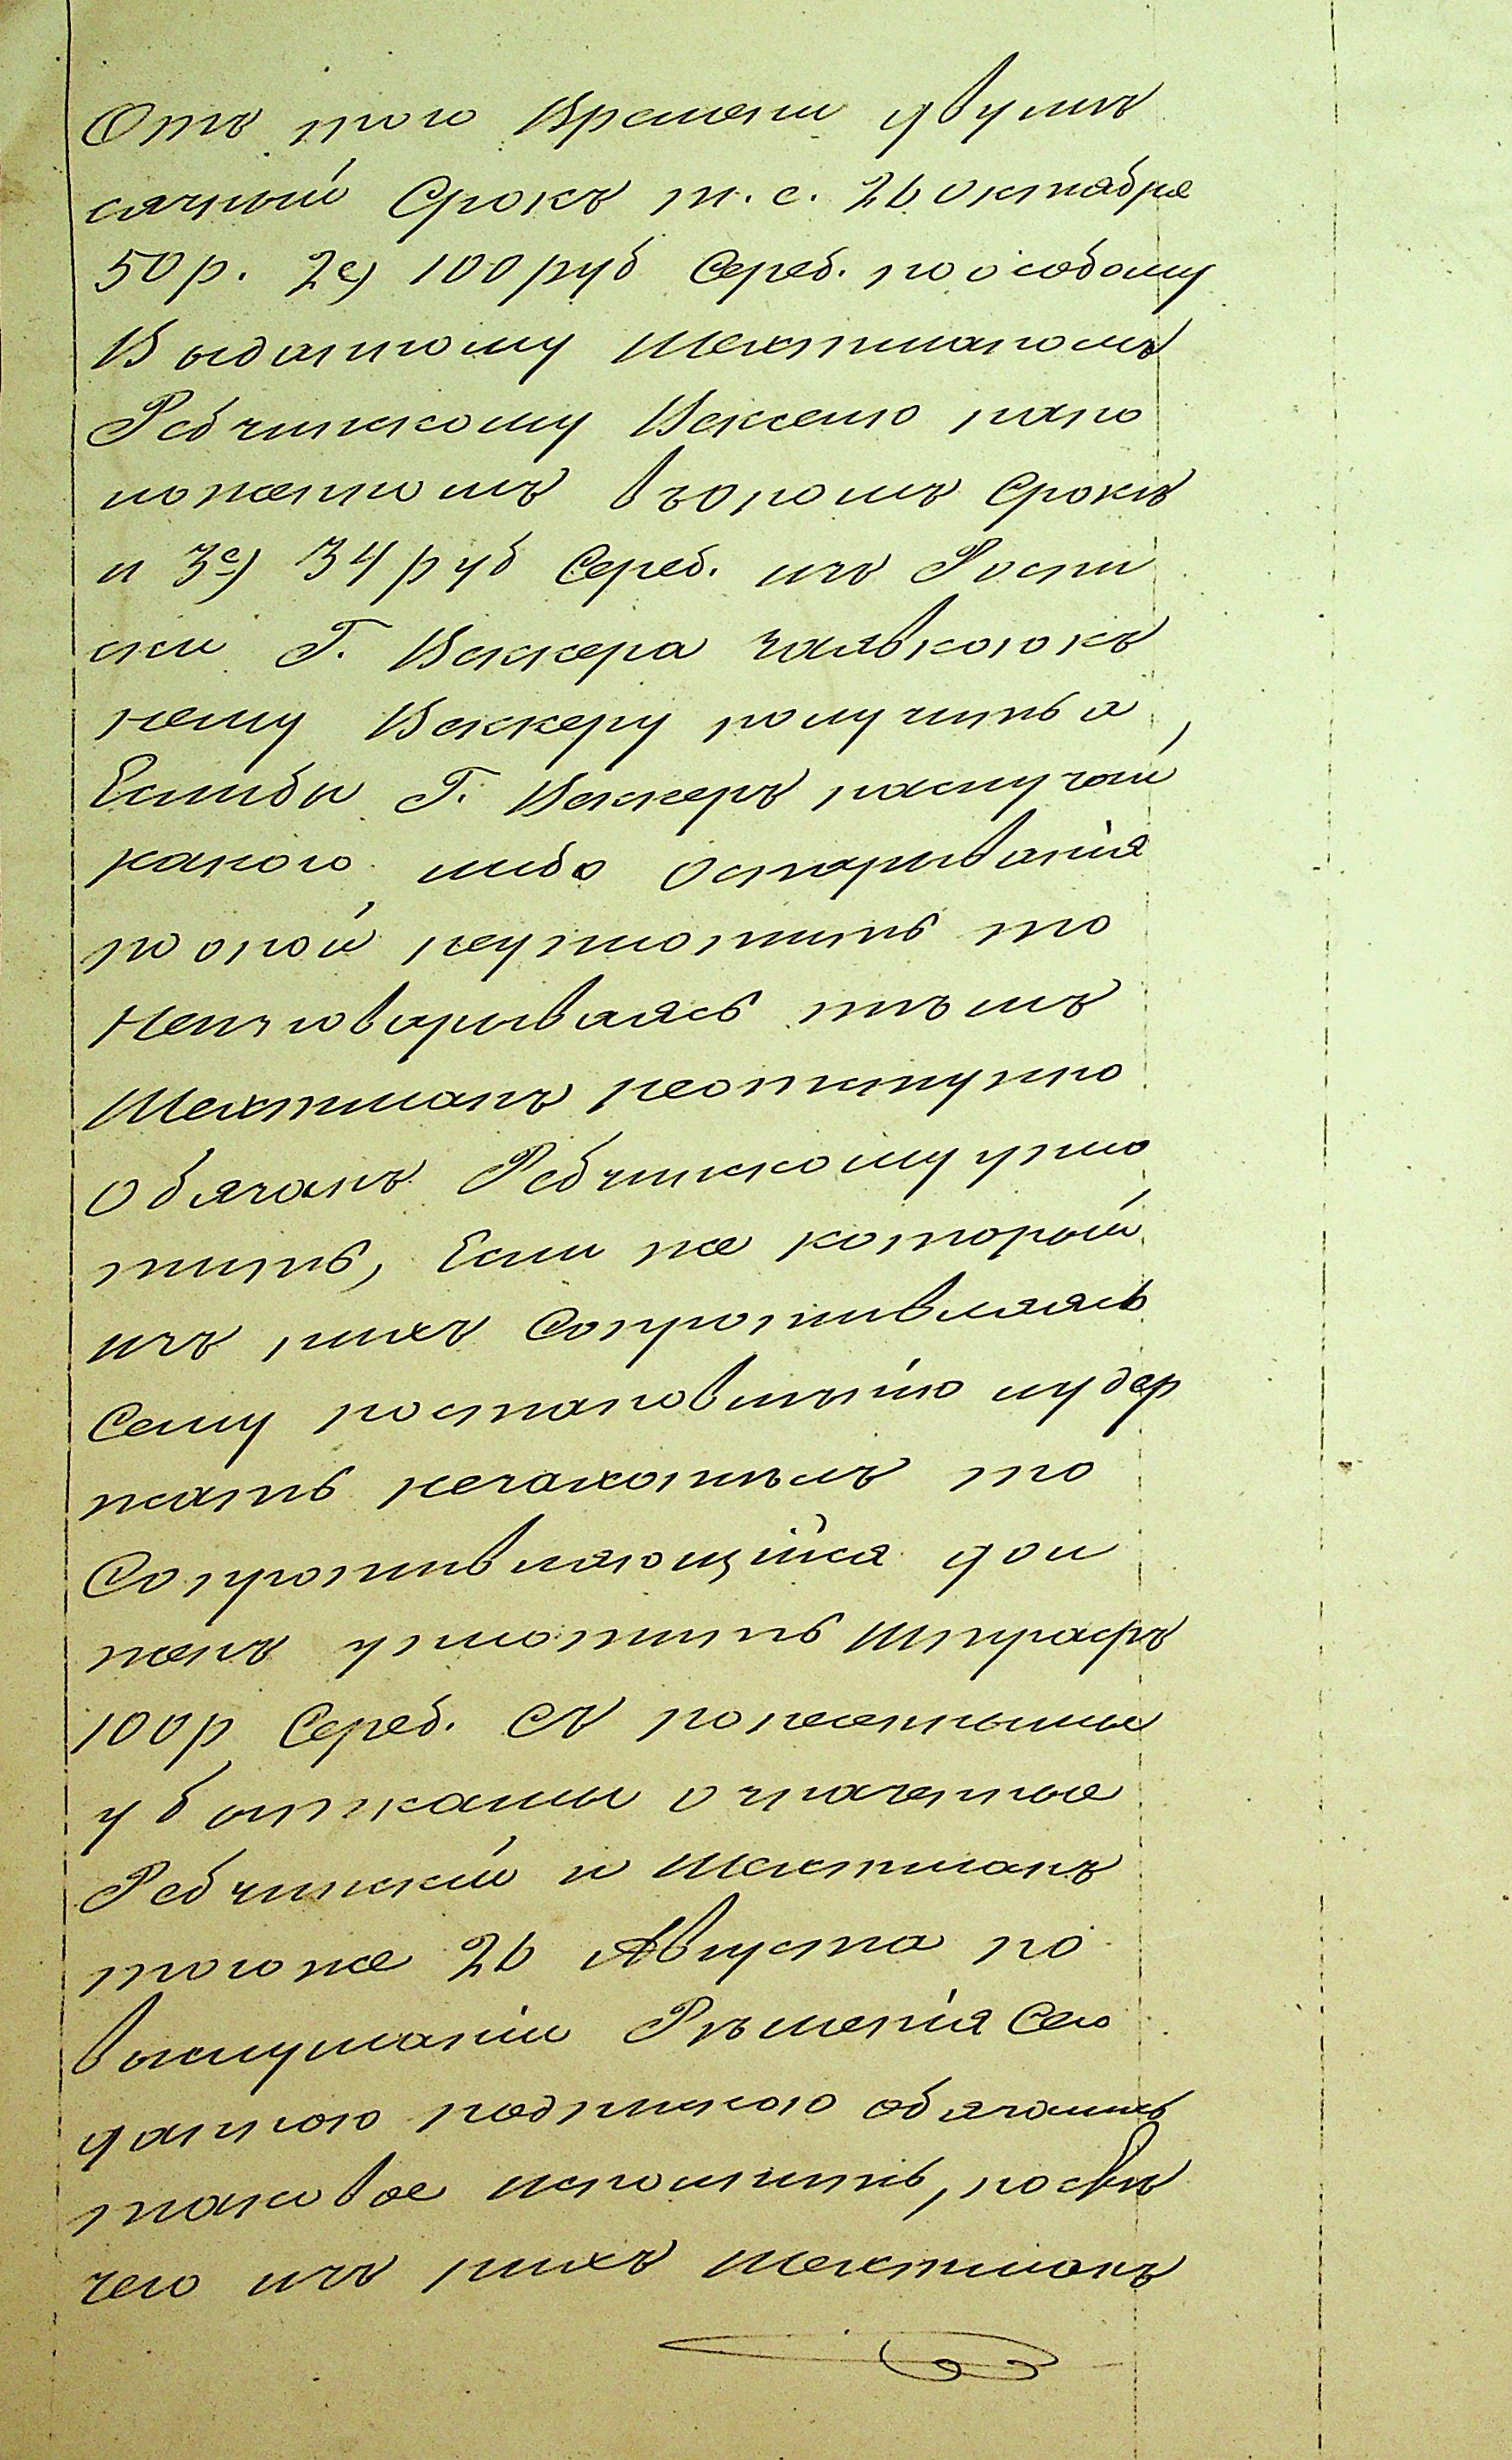 Отъ того Времени двумѣ
сячный Срокъ т. е. 26 октября
50 р. 2е) 100 руб Сереб. по особому
Выданному Шехтманомъ
Ребчинскому Векселю напо
ложенномъ въономъ Срокѣ
и 3е) 34 руб Сереб. изъ Роспи
ски Г. Веккера заявкоюкъ
нему Веккеру получить а
Еслибы Г. Веккеръ паслучаю
какого либо оспариванія
по оной неуплотитъ то
Неизговариваясь тѣмъ
Шехтманъ неотступно
обязанъ Ребчинскому упло
тить, Если же который
изъ нихъ Сопротивляясь
Сему постановлѣнію иудер
жатъ незахотѣлъ то
Сопротивляющійся дол
женъ уплотить штрафъ
100 р Сереб. Съ понесенными
убытками означенные
Ребчинскій и Шехтманъ
тогоже 26 Августа по
выслушаніи Рѣшенія Сего
данною подпискою обязались
таковое исполнить, послѣ
чего изъ нихъ Шехтманъ